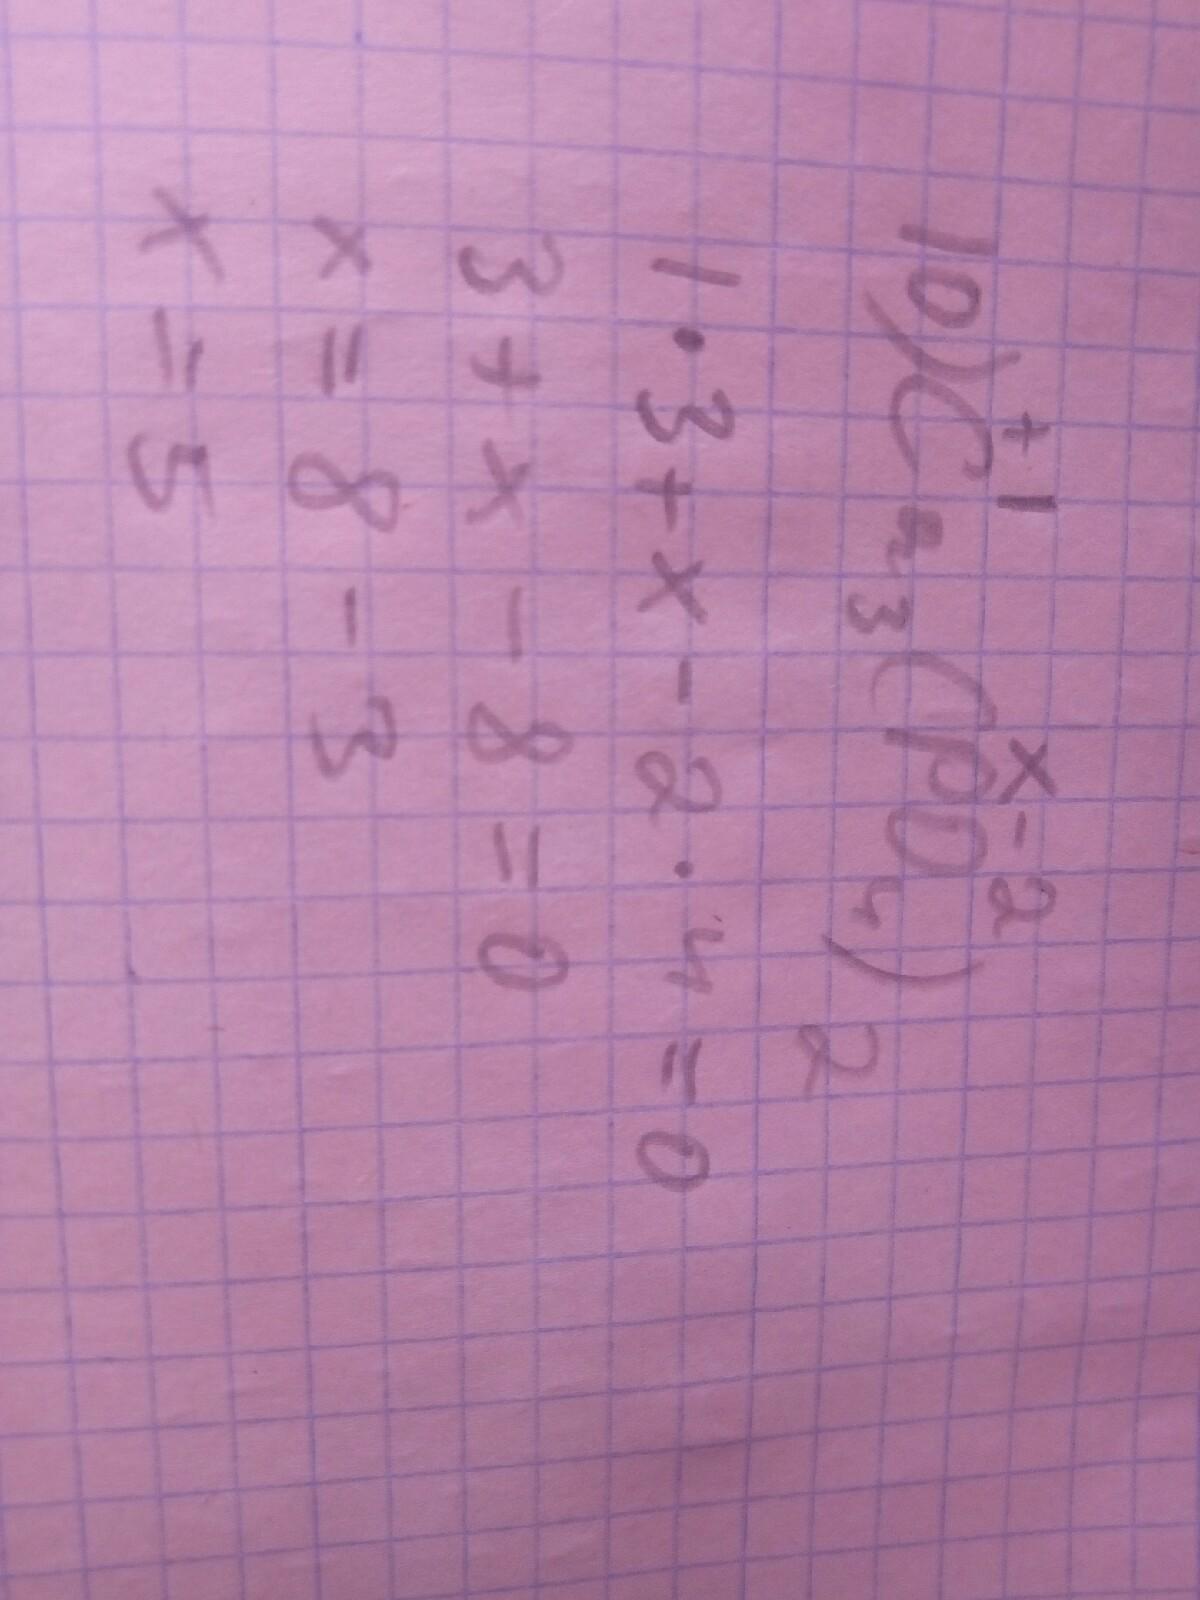 10) Ca₃⁺¹(PˣO₄⁻²)₂
1·3+x-2·4=0
3+x-8=0
x=8-3
x=5